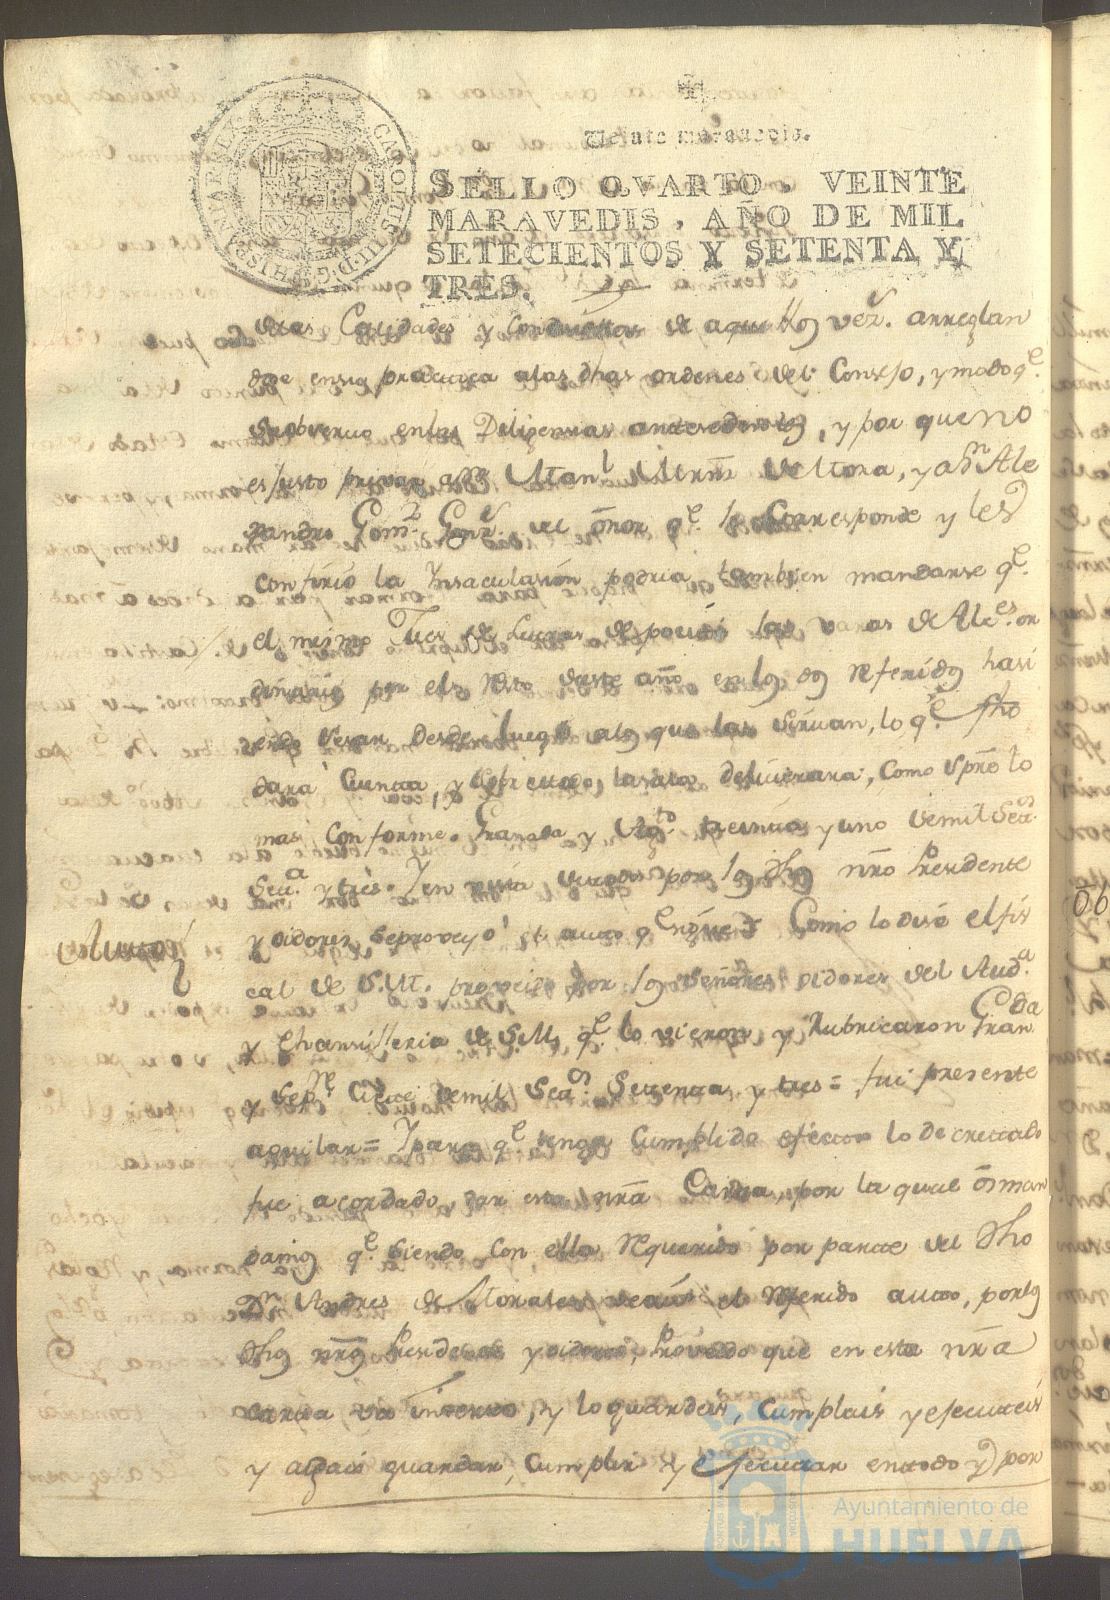 CAROLUS III D. G. HISPANIAR. REX
Veinte maravedis.
SELLO QVARTO, VEINTE
MARAVEDIS, AÑO DE MIL
SETECIENTOS Y SETENTA Y
TRES.
Calidades y de aquellos vez.s arreglan
dose en su practica a las dhas ordenes del Consejo, y modo q.e
se observo en las Diligensias antesedentes, y por que no
es justo privar a Dn Man.l Mrn de Mora, y a Dn Ale
xandro Gom.z Gonz.z del onor q.e les Corresponde y les
confirio la Ynsaculasion podria tambien mandarse q.e
el mismo Juez de Letras deposite las varas de Ales. or
dinarios por el resto deste año en los dos referidos hasi
endo sesar desde luego a los que las sirvan, lo q.e fho
dara Cuenta, y sobre todo la sala deliverara, como spre lo
mas conforme. Granada y Ag.to treinta y uno de mil Set.s
Set.a y tres. Y en vista por los dhos nro Presidente
y oidores, se proveyo el auto q.e sigue = Como lo dise el fis
Auto
cal de S.M. proveido por los señores oidores del Aud.a
y Chansilleria de S.M. q.e lo vieron, y Rubricaron Gran.da
y Sep.re siete de mil Set.s Setenta y tres = fui presente
aguilar = Y para q.e tenga cumplido efecto lo decretado
fue acordado, dar esta nra Carta, por la qual os man
damos q.e siendo con ella requerido por parte del dho
Dn Andres de Morales veais el referido auto, por los
dhos nros Presidente y oidores, Proveido que en esta nra
carta va inserto, y lo guardeis, cumplais y executeis
y agais guardar, cumplir y executar en todo y por
06
Ayuntamiento de
HUELVA